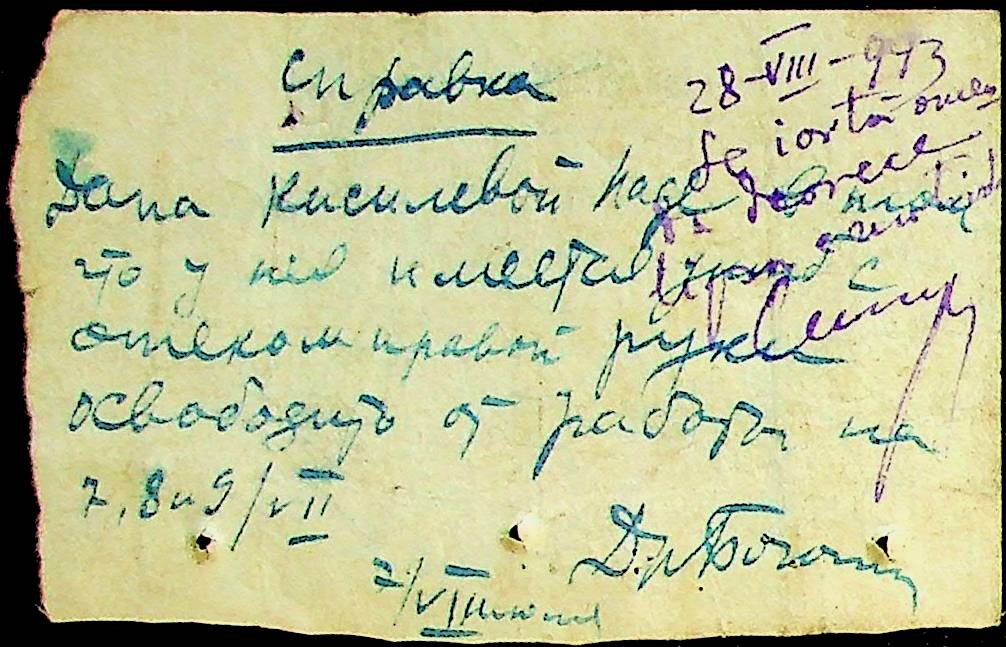 Справка
Дана Кисилевой Наде в том
что у неё имеется ушиб с
отеком правой руки
освободить от работы на
7, 8 и 9/VII
7/VII июля
Д-р
28-VIII-943
Se iartă